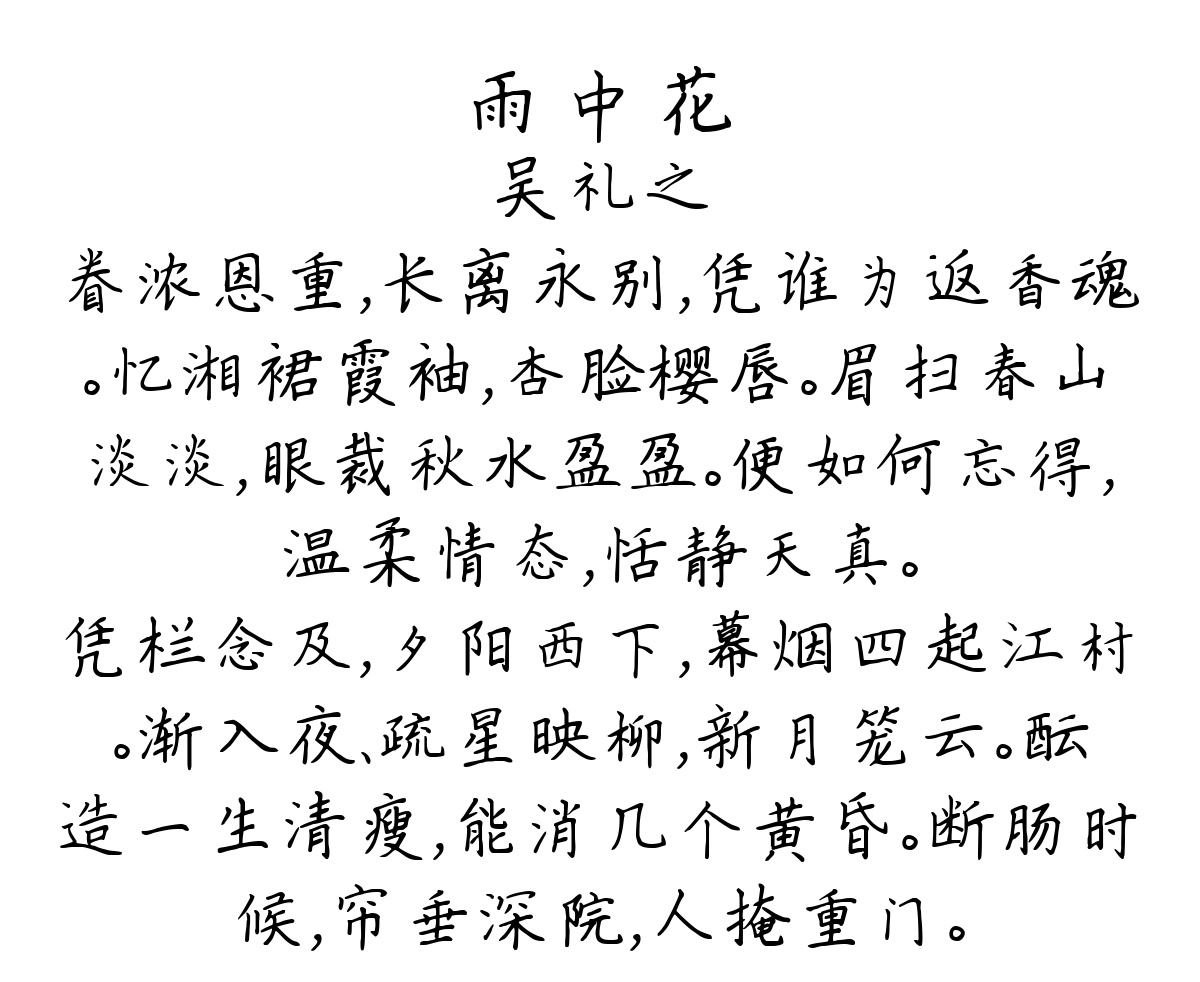 雨中花
吴礼之
眷浓恩重,长离永别,凭谁为返香魂
。忆湘裙霞袖,杏脸樱唇。眉扫春山
淡淡,眼裁秋水盈盈。便如何忘得,
温柔情态,恬静天真。
凭栏念及,夕阳西下,暮烟四起江村
。渐入夜、疏星映柳,新月笼云。酝
造一生清瘦,能消几个黄昏。断肠时
候,帘垂深院,人掩重门。